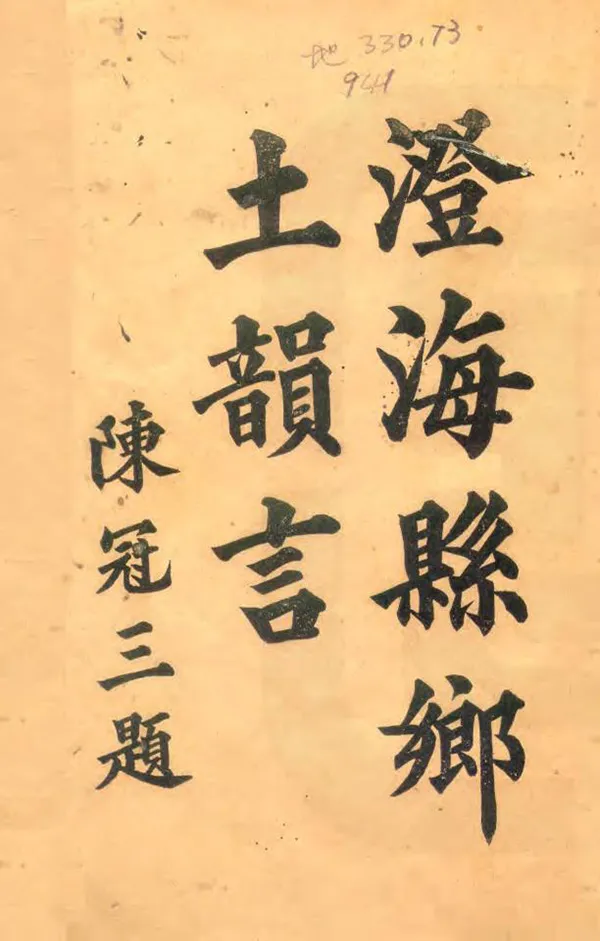 地 330.73
941
澄海縣鄉
土韻言
陳冠三題